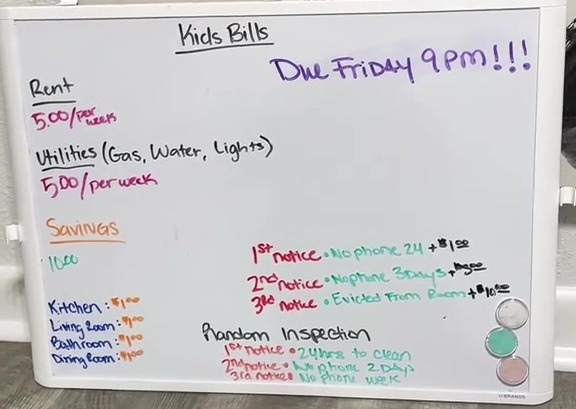 Kids Bills
Due Friday 9pm!!!
Rent
5.00/per week
Utilities (Gas, Water, Lights)
5.00/per week
Savings
10.00
Kitchen: $1.00
Living Room: $1.00
Bathroom: $1.00
Dining Room: $1.00
1st notice • No phone 24 + $1.00
2nd notice • No phone 3 Days +
3rd notice • Evicted From Room + $10.00
Random Inspection
1st notice • 24 hrs to clean
2nd notice • No phone 2 Days
3rd notice • No phone week
U BRANDS